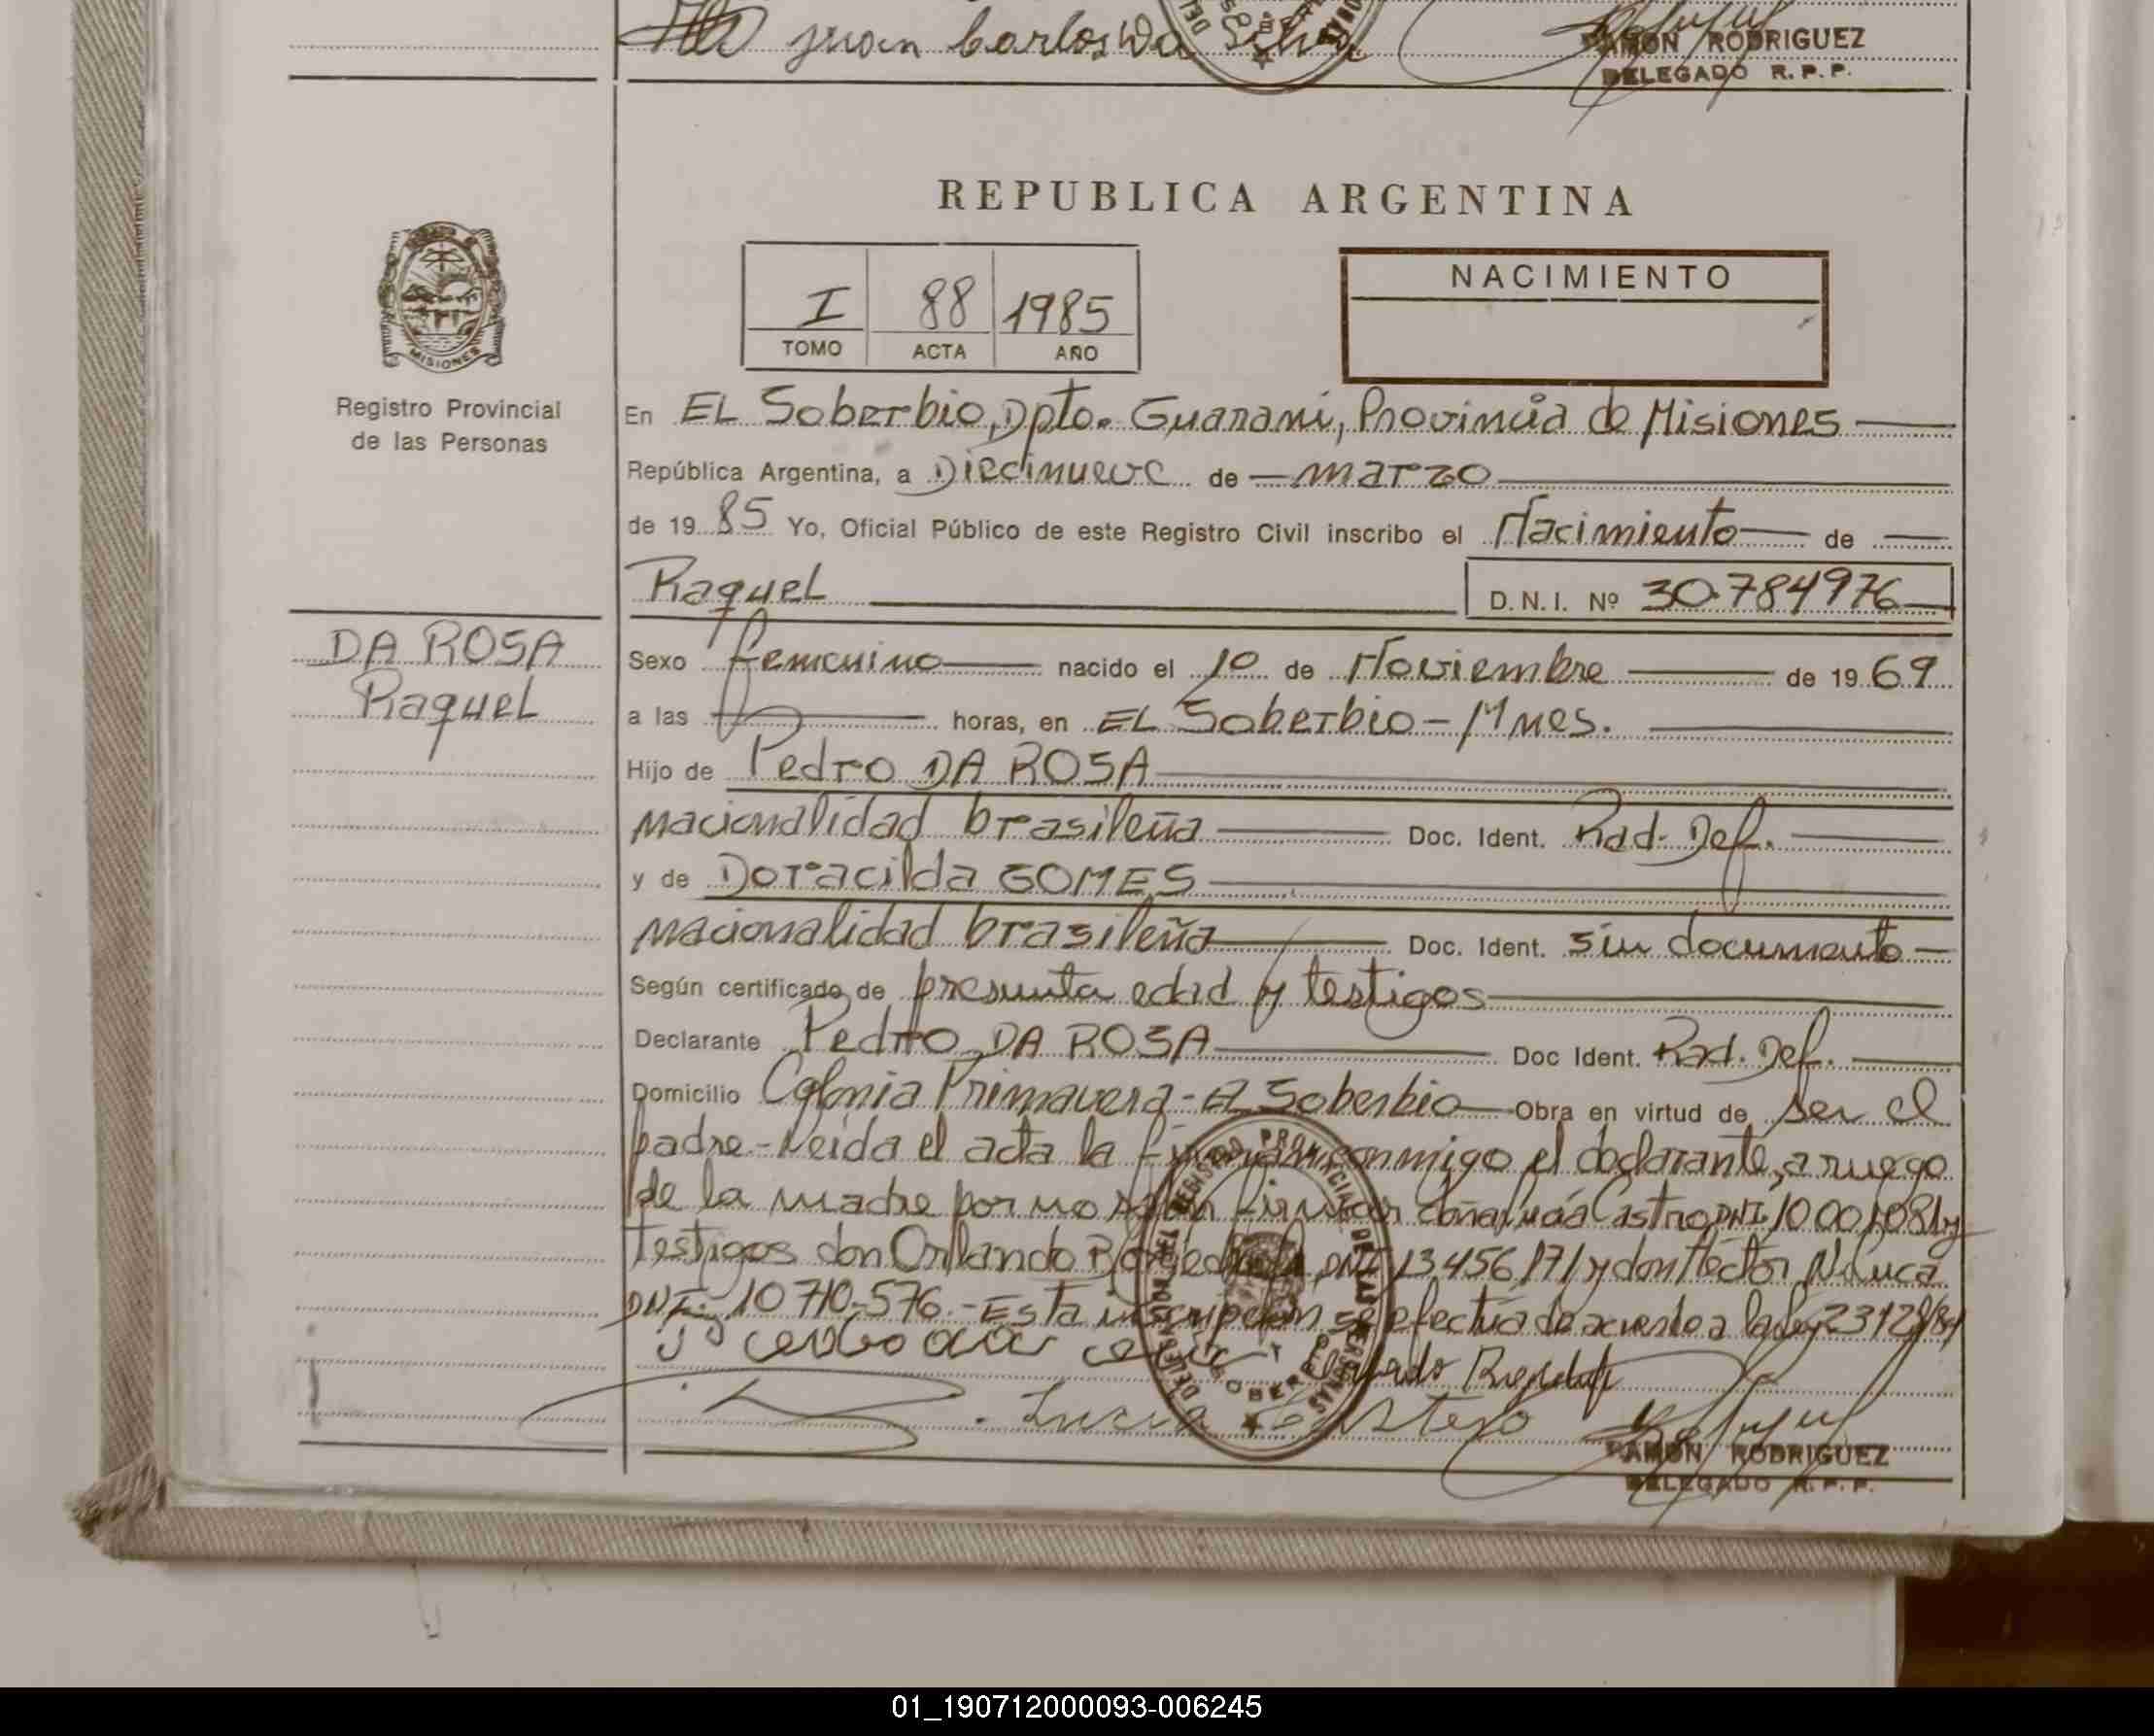 Juan Carlos Da Silva
RAMON RODRIGUEZ
DELEGADO R. P. P.
REPUBLICA ARGENTINA
I 88 1985
TOMO ACTA AÑO
NACIMIENTO
MISIONES
Registro Provincial
de las Personas
En EL Soberbio, Dpto. Guarani, Provincia de Misiones
República Argentina, a Diecinueve de marzo
de 1985 Yo, Oficial Público de este Registro Civil inscribo el Nacimiento de
Raquel D.N.I. Nº 30.784976
DA ROSA
Raquel
Sexo femenino nacido el 1º de Noviembre de 1969
a las horas, en EL Soberbio - Mnes.
Hijo de Pedro DA ROSA
nacionalidad brasileña Doc. Ident. Rad. Def.
y de Doracilda GOMES
nacionalidad brasileña Doc. Ident. sin documento
Según certificado de presunta edad y testigos
Declarante Pedro DA ROSA Doc Ident. Rad. Def.
Domicilio Colonia Primavera - El Soberbio Obra en virtud de ser el
padre - Leída el acta la firman conmigo el declarante, a ruego
de la madre por no saber firmar doña Lucía Castro DNI 10 001081 y
testigos don Orlando DNI 13456171 y don Héctor N. Luca
DNI. 10 710-576.- Esta inscripción se efectúa de acuerdo a la ley 23128/84
RAMON RODRIGUEZ
DELEGADO R. P. P.
01_190712000093-006245